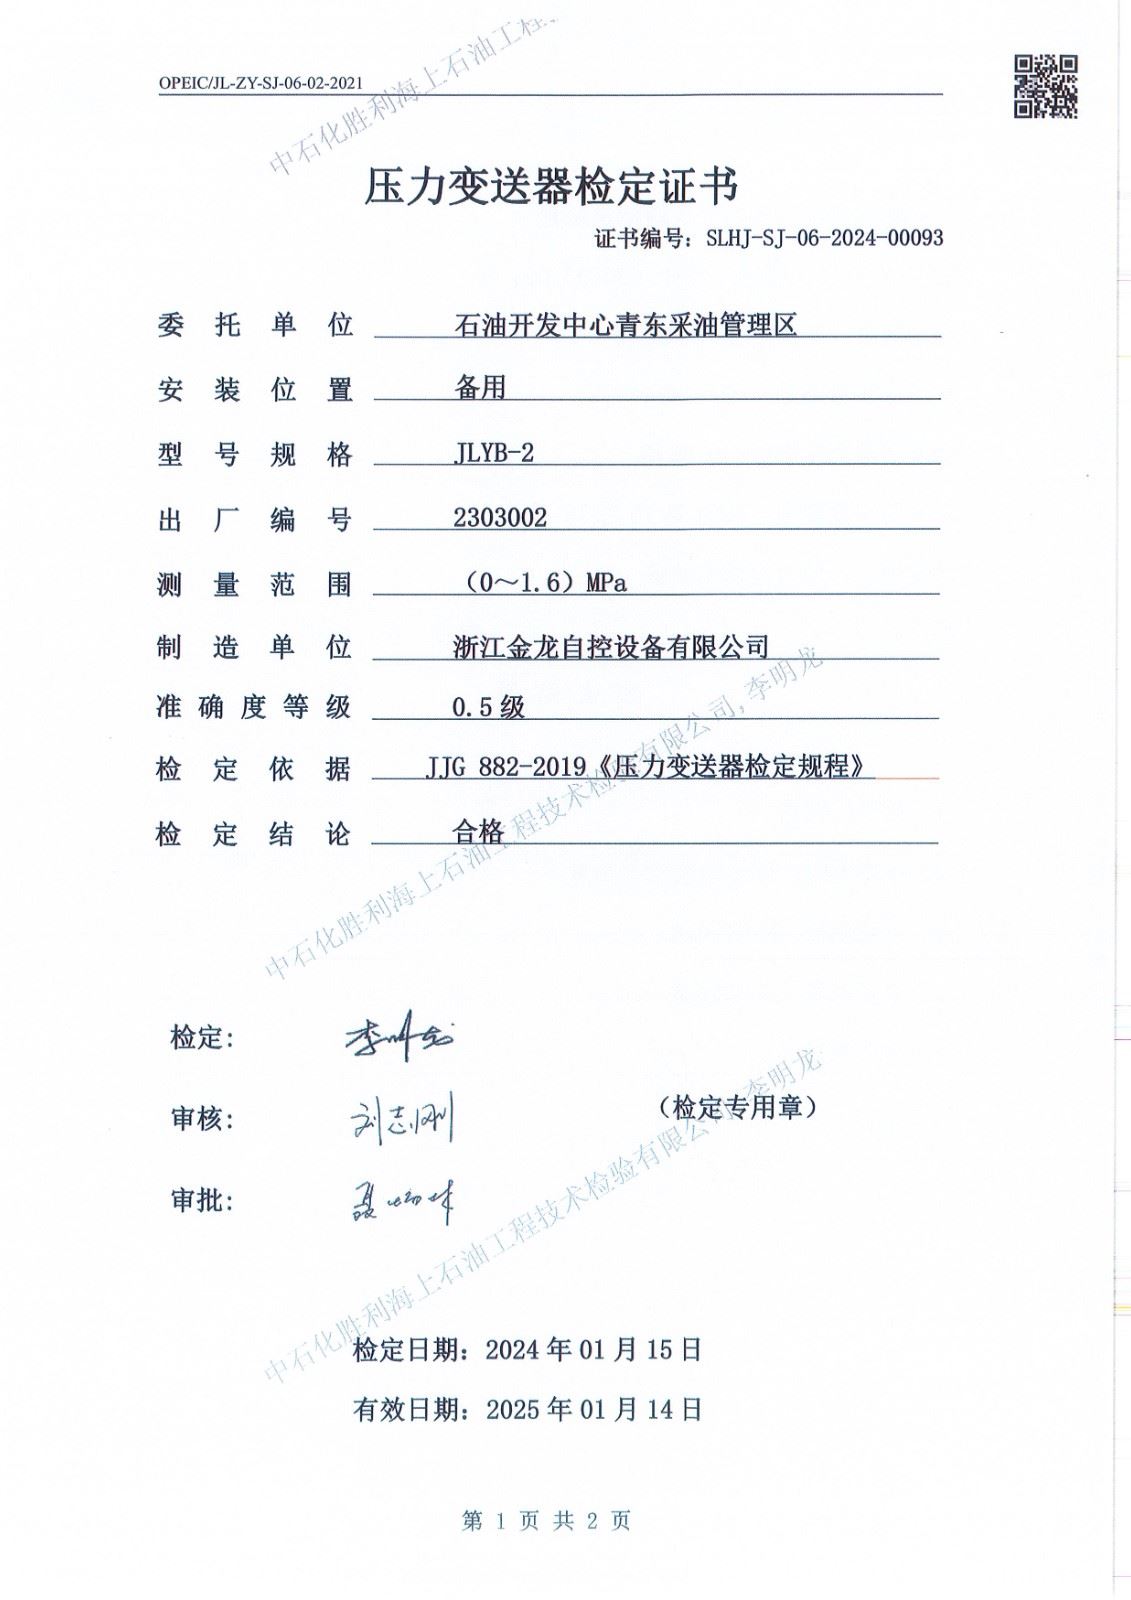 OPEIC/JL-ZY-SJ-06-02-2021
中石化胜利海上石油工程
压力变送器检定证书
证书编号：SLHJ-SJ-06-2024-00093
委托单位 石油开发中心青东采油管理区
安装位置 备用
型号规格 JLYB-2
出厂编号 2303002
测量范围 （0～1.6）MPa
制造单位 浙江金龙自控设备有限公司
准确度等级 0.5级
检定依据 JJG 882-2019《压力变送器检定规程》
检定结论 合格
中石化胜利海上石油工程技术检验有限公司, 李明龙
检定： 李明龙
审核： 刘志刚
（检定专用章）
审批：
中石化胜利海上石油工程技术检验有限公司, 李明龙
检定日期：2024年01月15日
有效日期：2025年01月14日
第 1 页 共 2 页